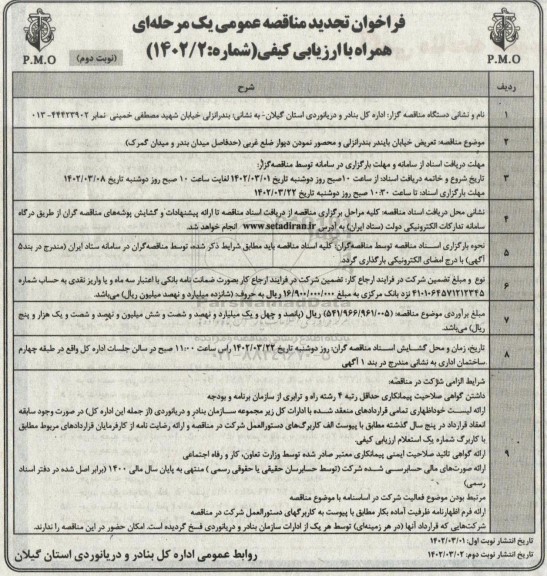 فراخوان تجدید مناقصه عمومی یک مرحله‌ای
همراه با ارزیابی کیفی(شماره:۱۴۰۲/۲)
(نوبت دوم)
P.M.O
P.M.O
ردیف
شرح
۱ نام و نشانی دستگاه مناقصه گزار: اداره کل بنادر و دریانوردی استان گیلان- به نشانی: بندرانزلی خیابان شهید مصطفی خمینی نمابر ۴۴۴۲۳۹۰۲-۰۱۳
۲ موضوع مناقصه: تعریض خیابان بایندر بندرانزلی و محصور نمودن دیوار ضلع غربی (حدفاصل میدان بندر و میدان گمرک)
۳ مهلت دریافت اسناد از سامانه و مهلت بارگزاری در سامانه توسط مناقصه‌گزار:
تاریخ شروع و خاتمه دریافت اسناد: از ساعت ۱۰صبح روز دوشنبه تاریخ ۱۴۰۲/۰۳/۰۱ لغایت ساعت ۱۰ صبح روز دوشنبه تاریخ ۱۴۰۲/۰۳/۰۸
مهلت بارگزاری اسناد: تا ساعت ۱۰:۳۰ صبح روز دوشنبه تاریخ ۱۴۰۲/۰۳/۲۲
۴ نشانی محل دریافت اسناد مناقصه: کلیه مراحل برگزاری مناقصه از دریافت اسناد مناقصه تا ارائه پیشنهادات و گشایش پوشه‌های مناقصه گران از طریق درگاه
سامانه تدارکات الکترونیکی دولت (ستاد ایران) به آدرس www.setadiran.ir انجام خواهد شد.
۵ نحوه بارگزاری اسناد مناقصه توسط مناقصه‌گران: کلیه اسناد مناقصه باید مطابق شرایط ذکر شده، توسط مناقصه‌گران در سامانه ستاد ایران (مندرج در بند۵
آگهی) با درج امضای الکترونیکی بارگذاری گردد.
۶ نوع و مبلغ تضمین شرکت در فرایند ارجاع کار: تضمین شرکت در فرایند ارجاع کار بصورت ضمانت نامه بانکی با اعتبار سه ماه و یا واریز نقدی به حساب شماره
۴۱۰۱۰۶۴۵۷۱۲۱۲۳۴۵ نزد بانک مرکزی به مبلغ ۱۶/۹۰۰/۰۰۰/۰۰۰ ریال به حروف: (شانزده میلیارد و نهصد میلیون ریال) می‌باشد.
۷ مبلغ برآوردی موضوع مناقصه: (۵۴۱/۹۶۶/۹۶۱/۰۰۵) ریال (پانصد و چهل و یک میلیارد و نهصد و شصت و شش میلیون و نهصد و شصت و یک هزار و پنج
ریال) می‌باشد.
۸ تاریخ، زمان و محل گشایش اسناد مناقصه گران: روز دوشنبه تاریخ ۱۴۰۲/۰۳/۲۲ راس ساعت ۱۱:۰۰ صبح در سالن جلسات اداره کل واقع در طبقه چهارم
ساختمان اداری به نشانی مندرج در بند ۱ آگهی
۹ شرایط الزامی شرکت در مناقصه:
داشتن گواهی صلاحیت پیمانکاری حداقل رتبه ۴ رشته راه و ترابری از سازمان برنامه و بودجه
ارائه لیست خوداظهاری تمامی قراردادهای منعقد شده با ادارات کل زیر مجموعه سازمان بنادر و دریانوردی (از جمله این اداره کل) در صورت وجود سابقه
انعقاد قرارداد در پنج سال گذشته مطابق با پیوست الف کاربرگ‌های دستورالعمل شرکت در مناقصه و ارائه رضایت نامه از کارفرمایان قراردادهای مربوط مطابق
با کاربرگ شماره یک استعلام ارزیابی کیفی.
ارائه گواهی تائید صلاحیت ایمنی پیمانکاری معتبر صادر شده توسط وزارت تعاون، کار و رفاه اجتماعی
ارائه صورت‌های مالی حسابرسی شده شرکت (توسط حسابرسان حقیقی یا حقوقی رسمی ) منتهی به پایان سال مالی ۱۴۰۰ (برابر اصل شده در دفتر اسناد
رسمی)
مرتبط بودن موضوع فعالیت شرکت در اساسنامه با موضوع مناقصه
ارائه فرم اظهارنامه ظرفیت آماده بکار مطابق با پیوست به کاربرگهای دستورالعمل شرکت در مناقصه
شرکت‌هایی که قرارداد آنها (در هر زمینه‌ای) توسط هر یک از ادارات سازمان بنادر و دریانوردی فسخ گردیده است. امکان حضور در این مناقصه را ندارند.
تاریخ انتشار نوبت اول: ۱۴۰۲/۰۳/۰۱
تاریخ انتشار نوبت دوم: ۱۴۰۲/۰۳/۰۲
روابط عمومی اداره کل بنادر و دریانوردی استان گیلان